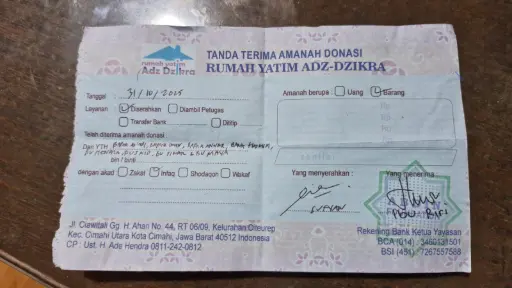 rumah yatim
Adz Dzikra
TANDA TERIMA AMANAH DONASI
RUMAH YATIM ADZ-DZIKRA
Tanggal : 31/10/2025
Amanah berupa : Uang Barang
Layanan : Diserahkan Diambil Petugas
Transfer Bank Dititip
Rp
Telah diterima amanah donasi
Dari YTH
bin / binti
dengan akad : Zakat Infaq Shodaqoh Wakaf
Yang menyerahkan :
Yang menerima
Jl. Ciawitah Gg. H. Ahari No. 44, RT 06/09, Kelurahan Citeureup
Kec. Cimahi Utara Kota Cimahi, Jawa Barat 40512 Indonesia
CP : Ust. H. Ade Hendra 0811-242-0812
Rekening Bank Ketua Yayasan
BCA (014) :
BSI (451) : 7267557588